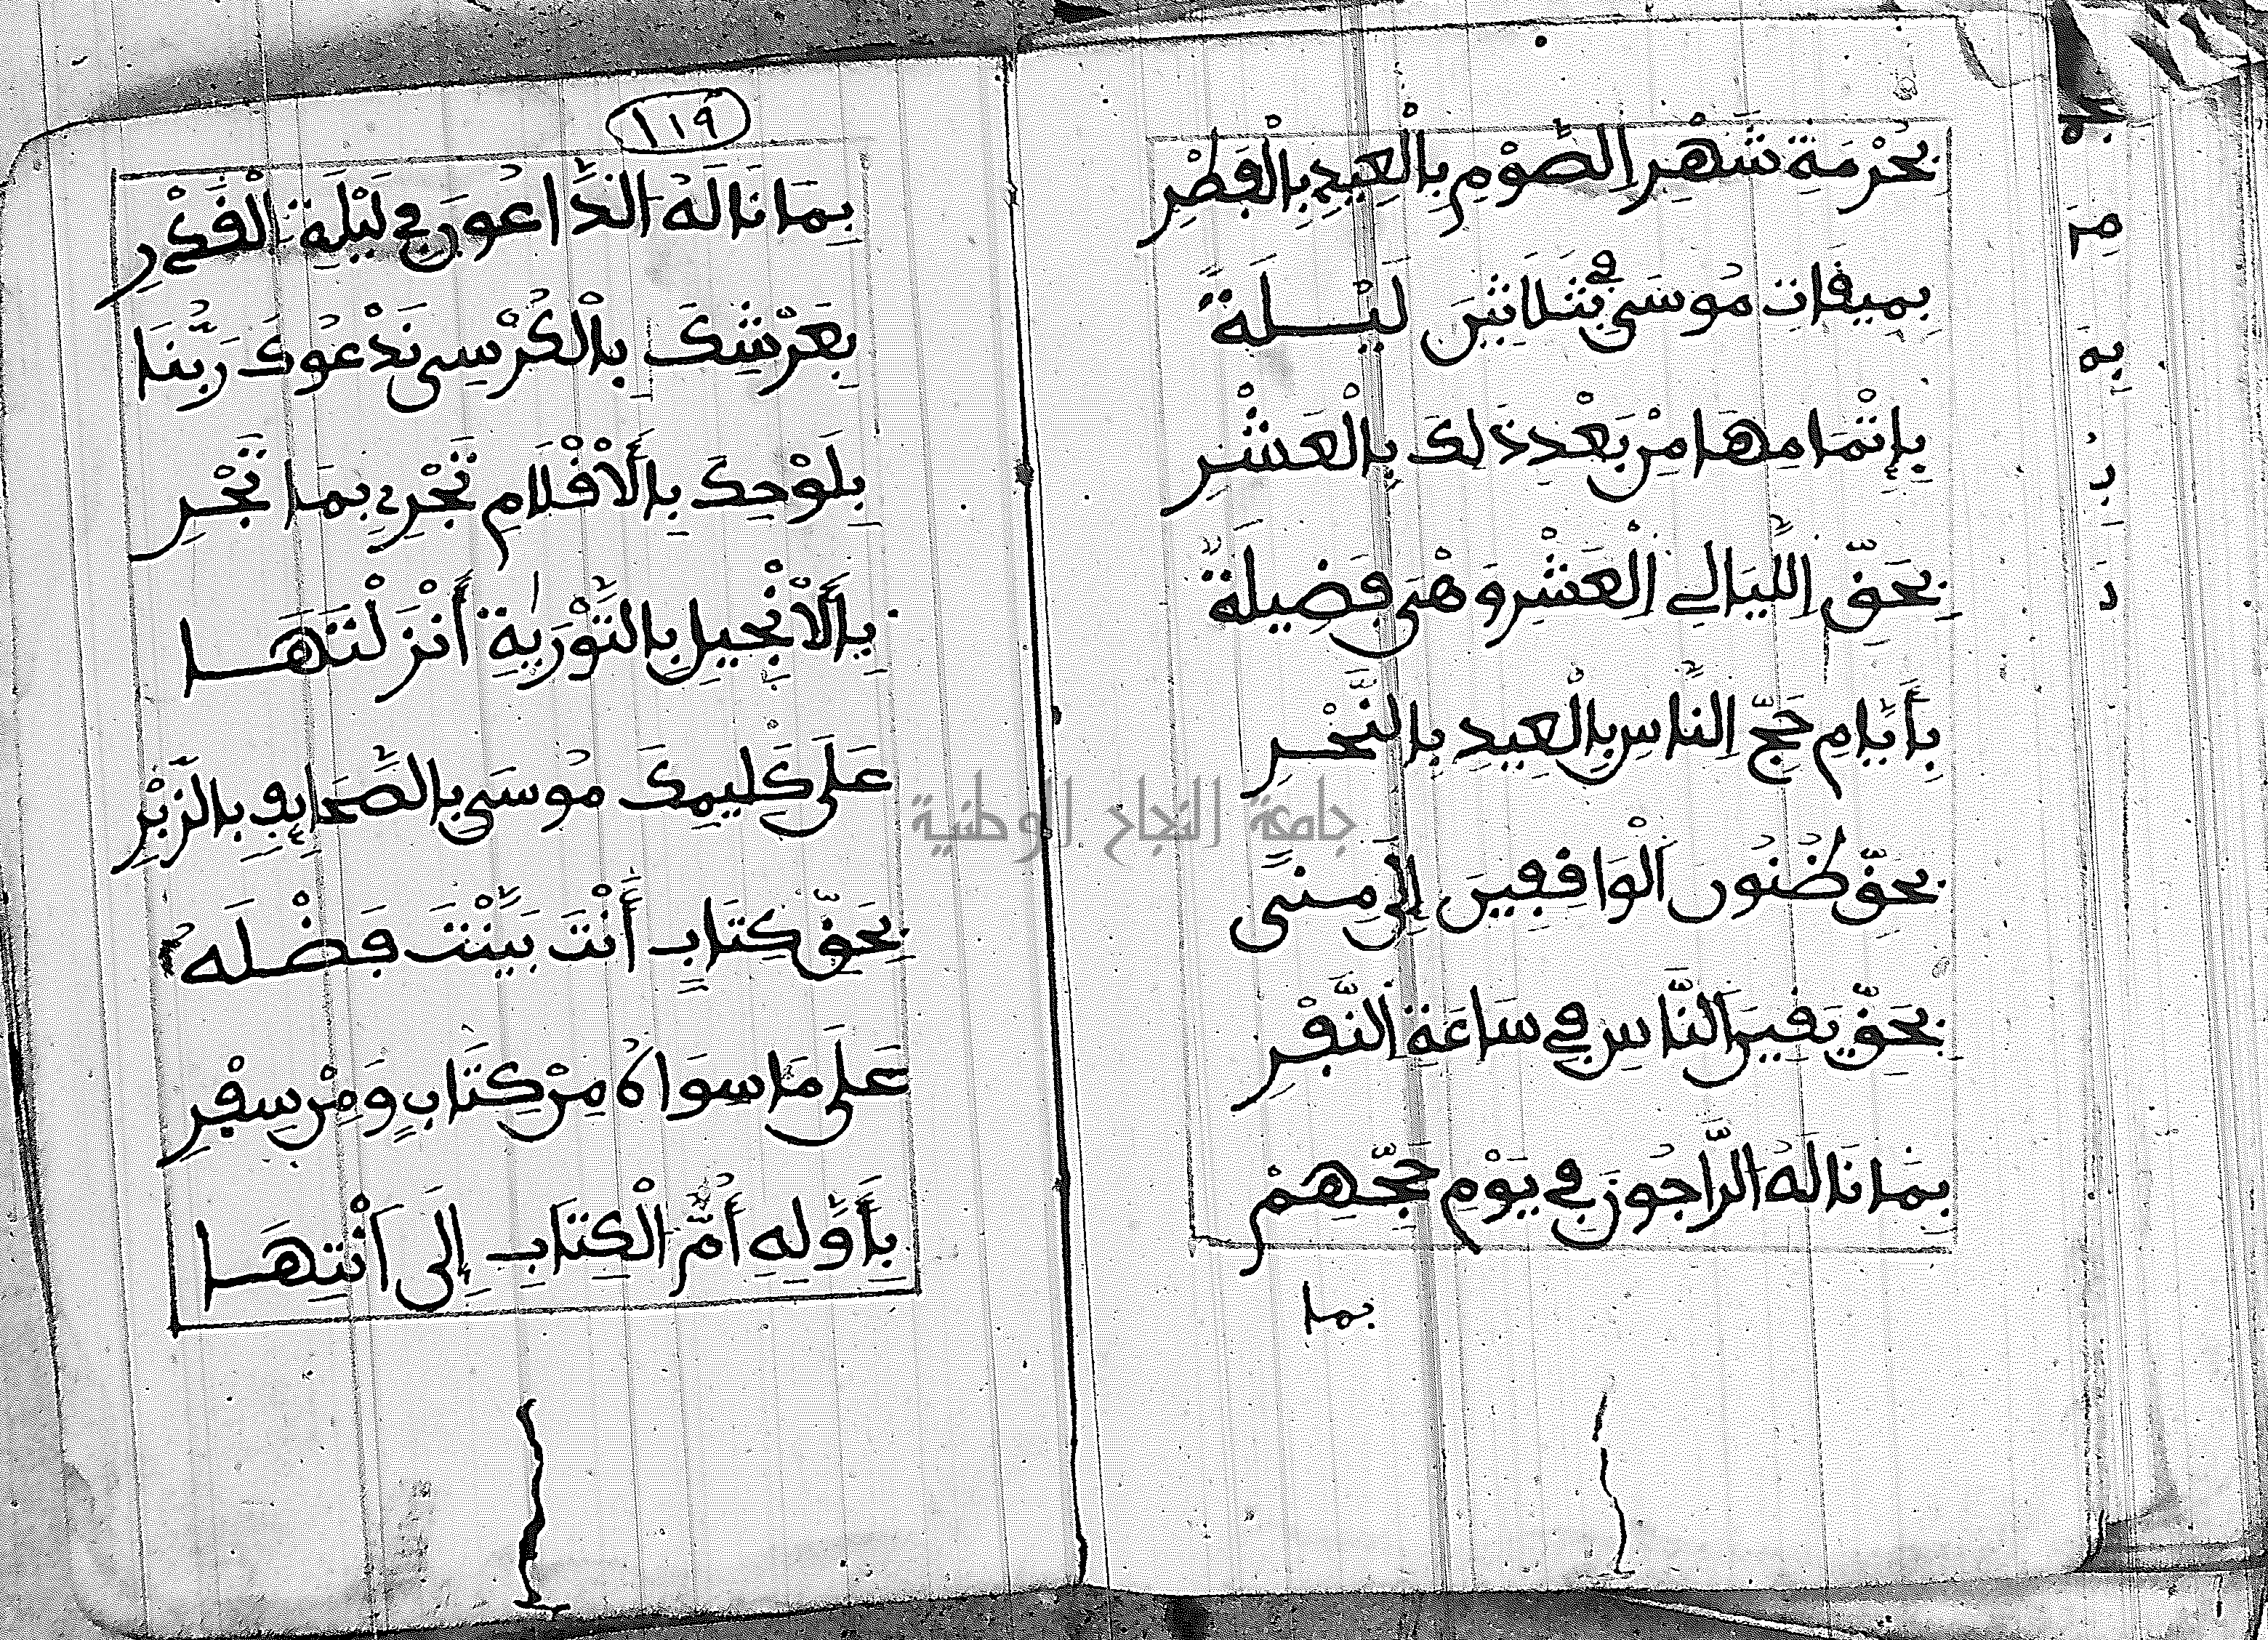 بِحُرْمَةِ شَهْرِ الصَّوْمِ بِالْعِيدِ بِالْفِطْرِ
بِمِيقَاتِ مُوسَى فِي ثَلَاثِينَ لَيْلَةً
بِإِتْمَامِهَا مِنْ بَعْدِ ذَلِكَ بِالْعَشْرِ
بِحَقِّ اللَّيَالِي الْعَشْرِ وَهْيَ فَضِيلَةٌ
بِأَيَّامِ حَجِّ النَّاسِ بِالْعِيدِ بِالنَّحْرِ
بِحَقِّ ظُنُونِ الْوَاقِفِينَ إِلَى مِنًى
بِحَقِّ يَقِينِ النَّاسِ فِي سَاعَةِ النَّفْرِ
بِمَا نَالَهُ الرَّاجُونَ فِي يَوْمِ حَجِّهِمْ
بما
١١٩
بِمَا نَالَهُ الدَّاعُونَ فِي لَيْلَةِ الْقَدْرِ
بِعَرْشِكَ بِالْكُرْسِي نَدْعُوكَ رَبَّنَا
بِلَوْحِكَ بِالْأَقْلَامِ تَجْرِي بِمَا تَجْرِ
بِالْإِنْجِيلِ بِالتَّوْرَيةِ أَنْزَلْتَهَا
عَلَى كَلِيمِكَ مُوسَى بِالصَّحَايِفِ بِالزَّبْرِ
بِحَقِّ كِتَابٍ أَنْتَ بَيَّنْتَ فَضْلَهُ
عَلَى مَا سِوَاهُ مِنْ كِتَابٍ وَمِنْ سِفْرِ
بِأَوَّلِهِ أُمِّ الْكِتَابِ إِلَى انْتِهَا
جامعة النجاح الوطنية